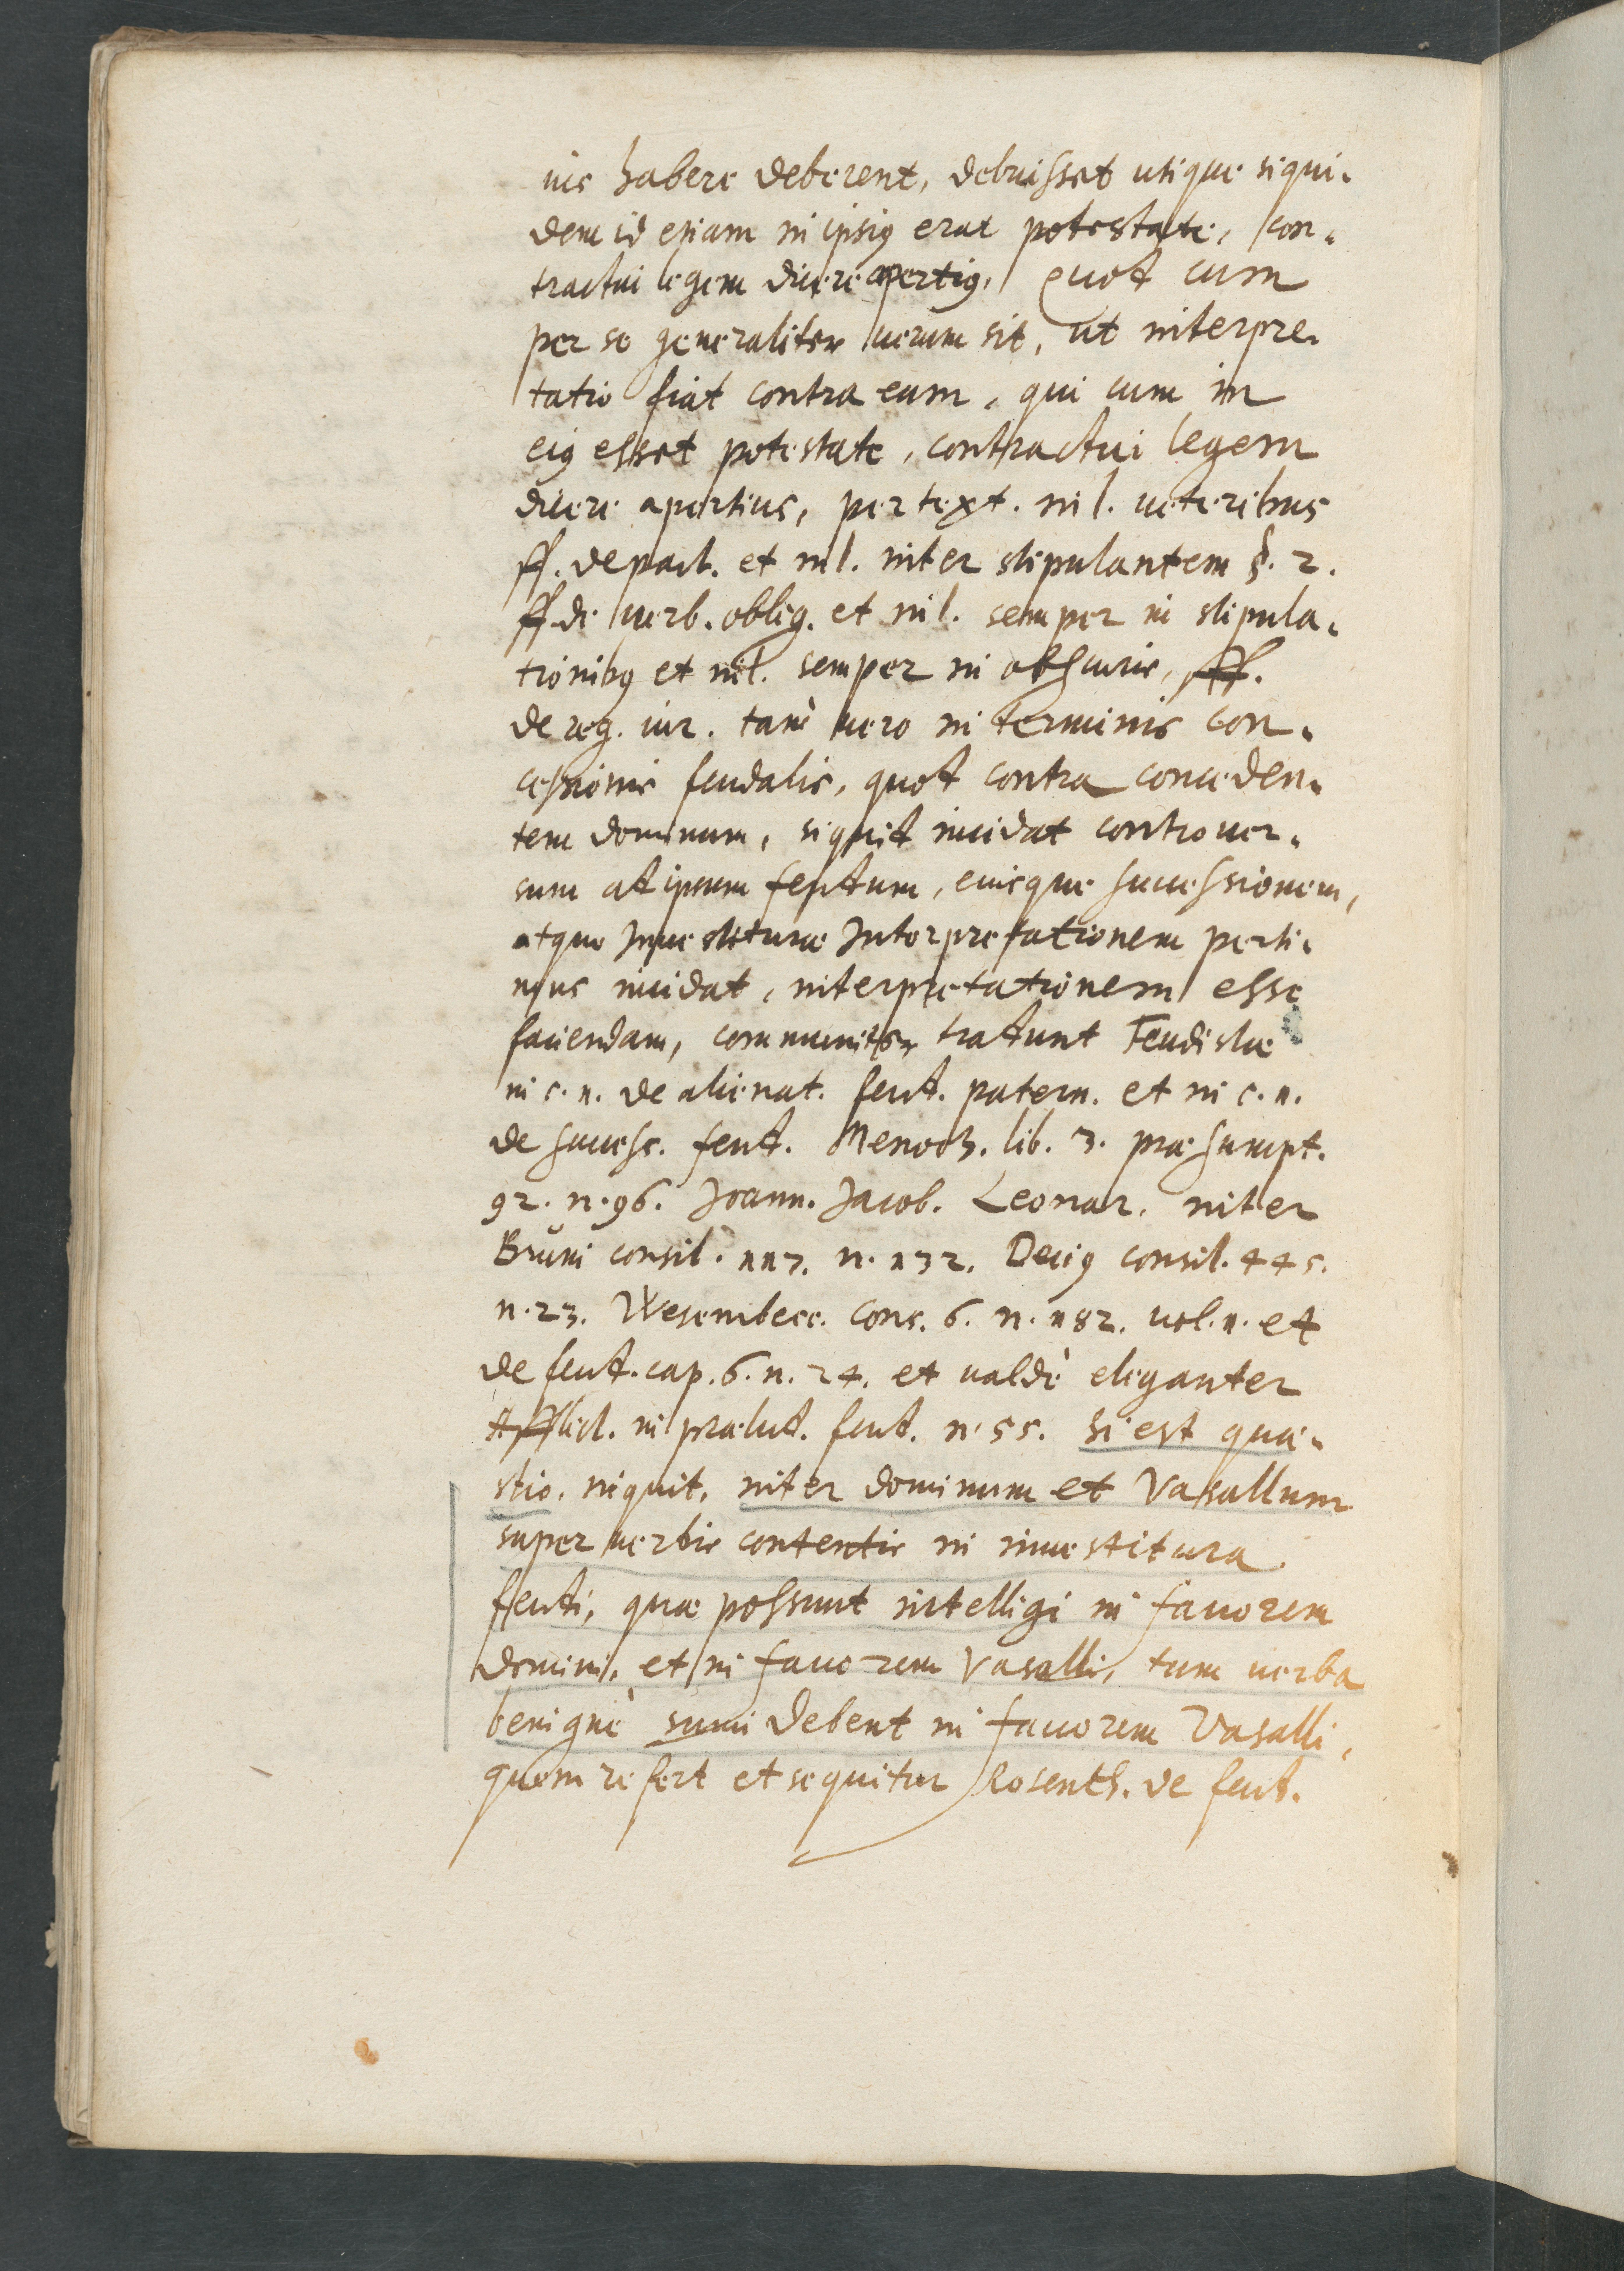 ius habere deberent, debuisset utique siqui-
dem id etiam in ipsius erat potestate, con-
tractui legem dicere apertius, quod cum
per se generaliter verum sit, ut interpre-
tatio fiat contra eum, qui cum in
eius esset potestate, contractui legem
dicere apertius, per text. in l. veteribus
ff. de pact. et in l. inter stipulantem §. 2.
ff. de verb. oblig. et in l. semper in stipula-
tionibus et in l. semper in obscuris, ff.
de reg. iur. tam vero in terminis con-
cessionis feudalis, quod contra conceden-
tem dominum, si quid incidat controver-
sum ad ipsum feudum, eiusque successionem,
atque Investiturae Interpretationem perti-
nens incidat, interpretationem esse
faciendam, communiter tradunt Feudistae
in c. 1. de alienat. feud. patern. et in c. 1.
de success. feud. Menoch. lib. 3. praesumpt.
92. n. 96. Joann. Jacob. Leonar. inter
Bruni consil. 117. n. 132. Decius consil. 445.
n. 23. Wesembecc. cons. 6. n. 182. vol. 1. et
de feud. cap. 6. n. 24. et valdè eleganter
Afflict. in praelud. feud. n. 55. si est quae-
stio, inquit, inter dominum et Vasallum
super verbis contentis in investitura
feudi, quae possunt intelligi in favorem
domini, et in favorem Vasalli, tum verba
benignè sumi debent in favorem Vasalli,
quem refert et sequitur Rosenth. de feud.